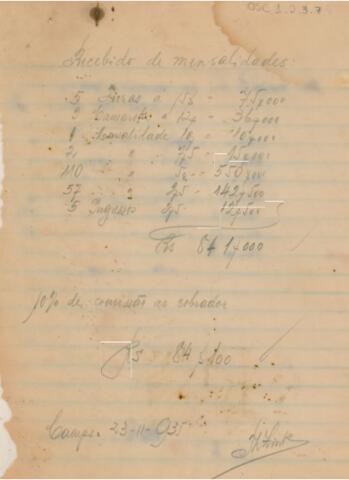 OSC 1.2.3.7
Recebido de mensalidades:
5 a 15 - 75,000
3 Camarotes a 12 - 36,000
1 Mensalidade 10 - 10,000
" " 7,5 - 15,000
110 " " 5 - 550,000
57 " " 2,5 - 142,500
5 Ingressos 2,5 - 12,500
Rs 841,000
10% de comissão ao cobrador
Rs 84,100
23-11-935